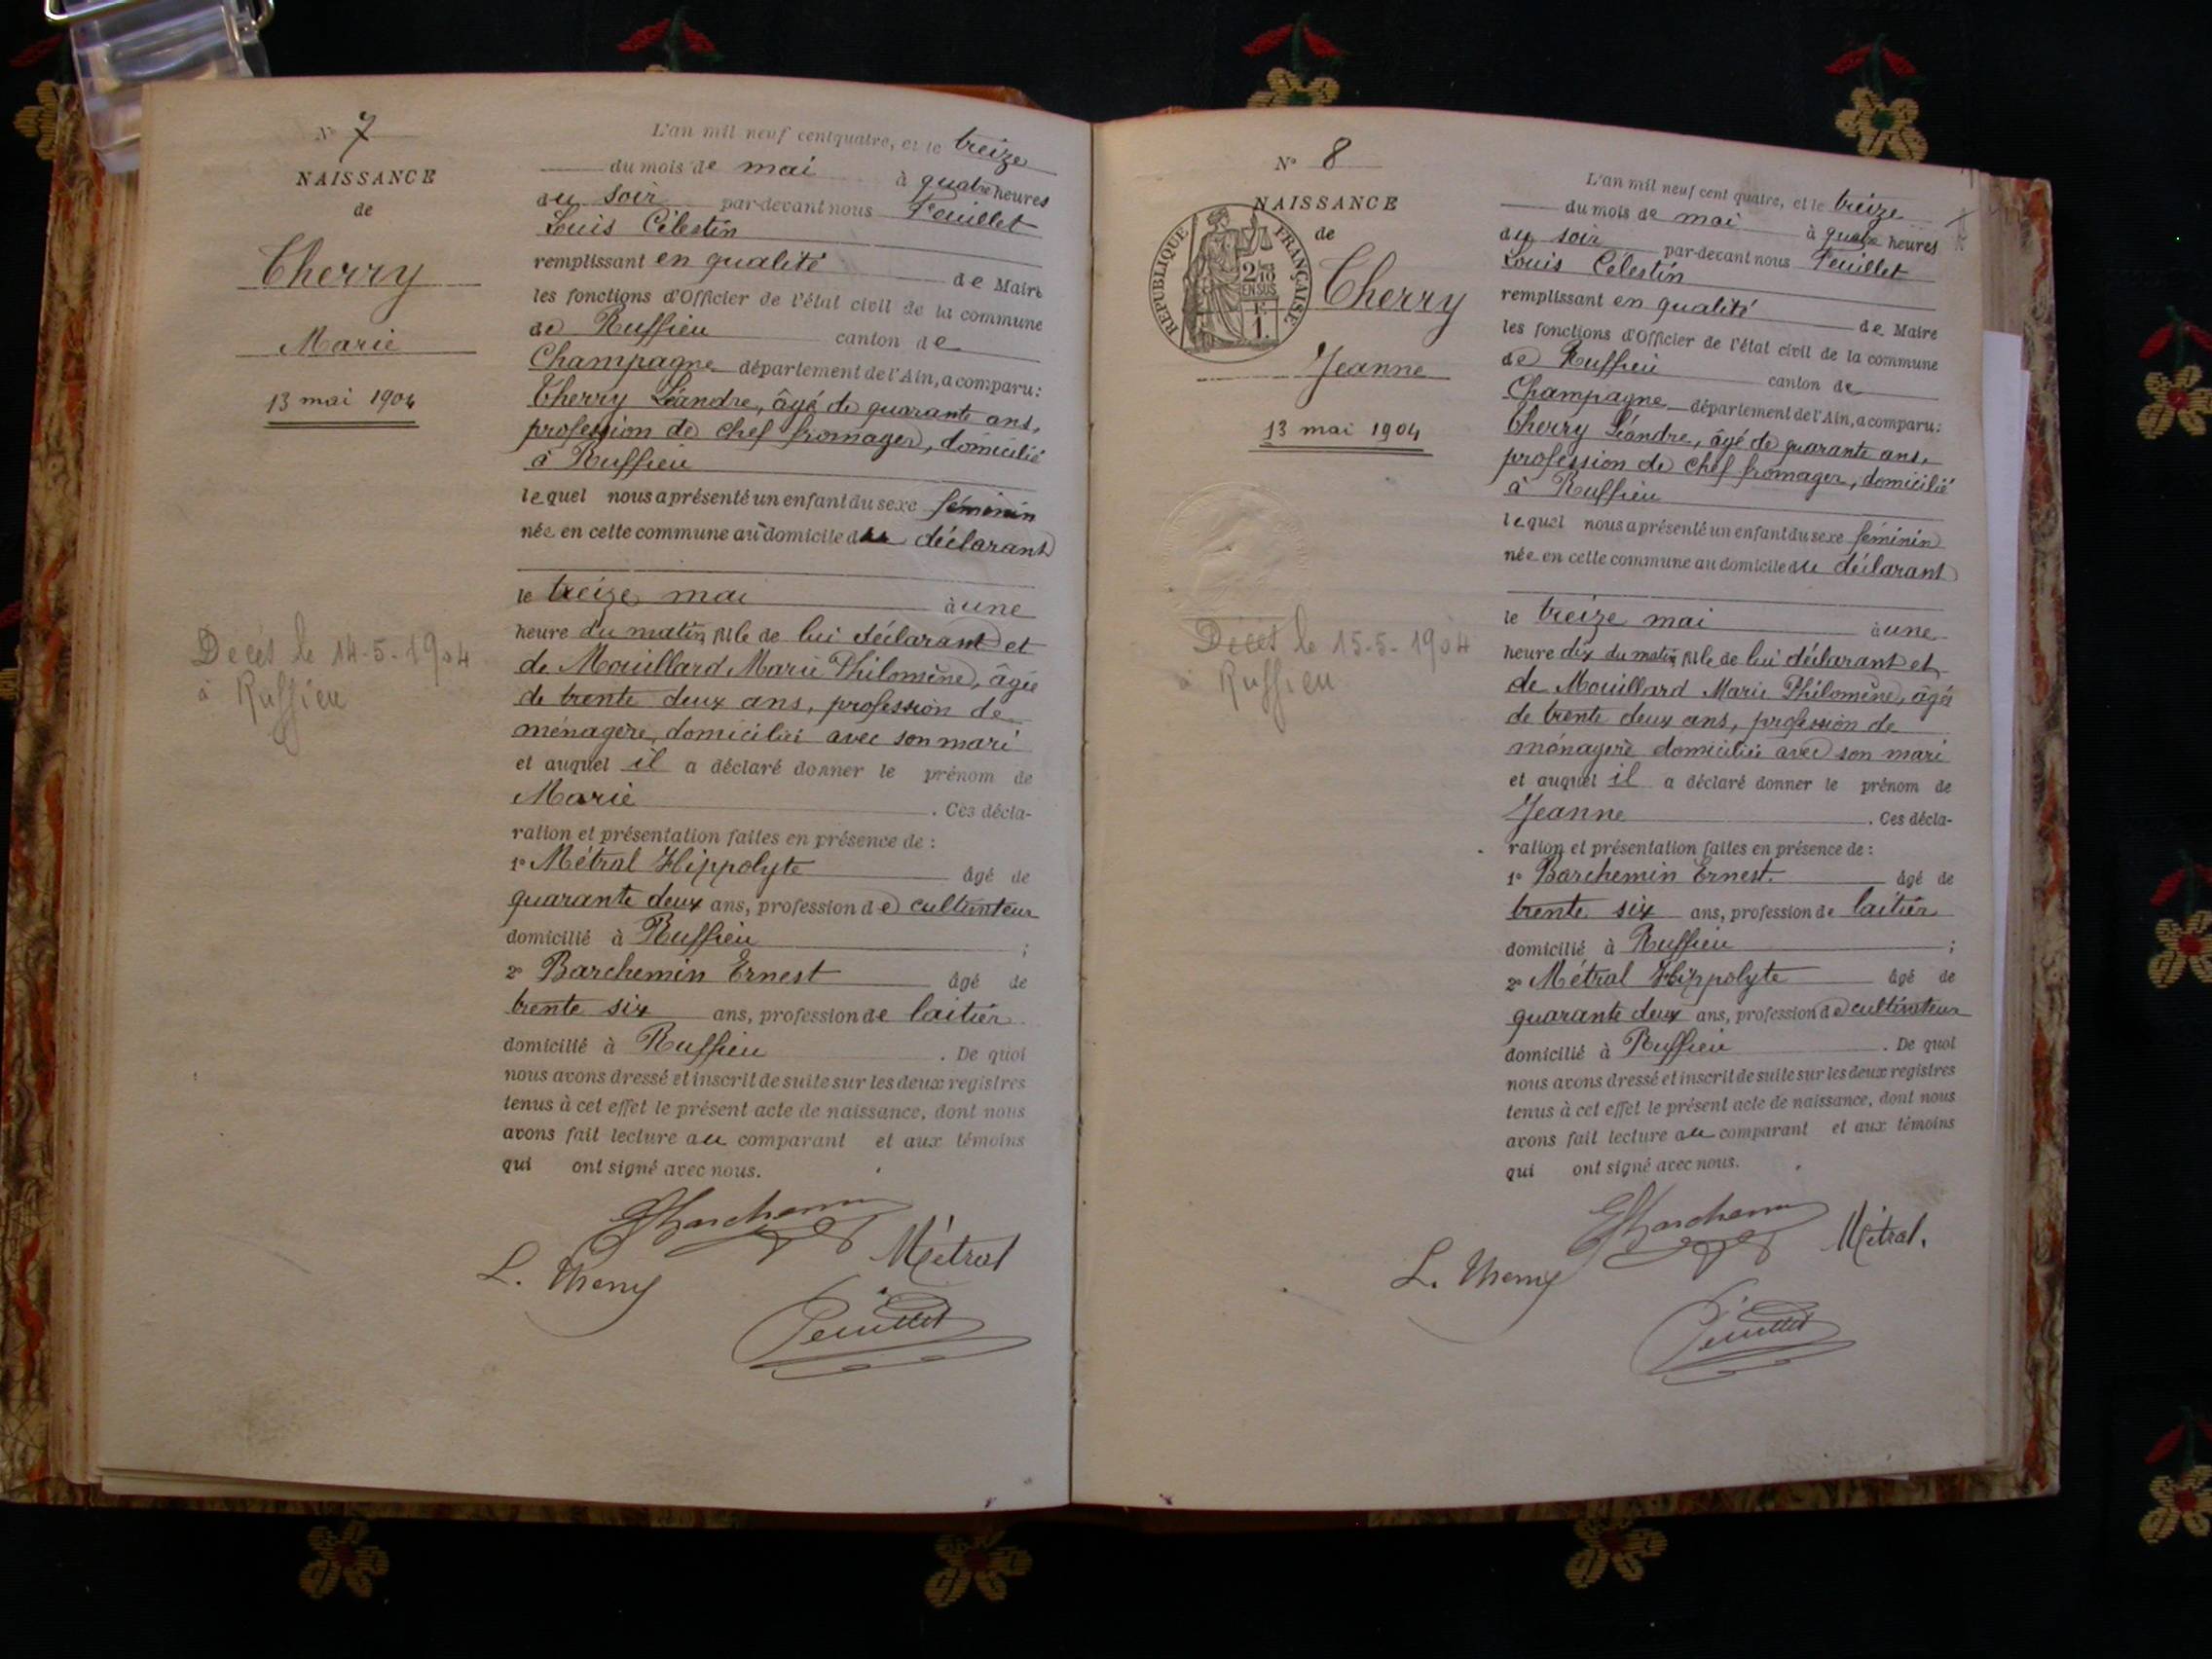 N° 7
NAISSANCE
de
Therry
Marie
13 mai 1904
Decés le 14-5-1904
à Ruffieu
L'an mil neuf cent quatre, et le treize
du mois de mai à quatre heures
du soir par-devant nous Feuillet
Louis Célestin
remplissant en qualité de Maire
les fonctions d'Officier de l'état civil de la commune
de Ruffieu canton de
Champagne département de l'Ain, a comparu:
Therry Léandre, âgé de quarante ans,
profession de chef fromager, domicilié
à Ruffieu
lequel nous a présenté un enfant du sexe féminin
née en cette commune au domicile du déclarant
le treize mai à une
heure du matin, fille de lui déclarant et
de Mouillard Marie Philomène, âgée
de trente deux ans, profession de
ménagère, domiciliée avec son mari
et auquel il a déclaré donner le prénom de
Marie. Ces décla-
ration et présentation faites en présence de :
1° Métral Hippolyte âgé de
quarante deux ans, profession de cultivateur
domicilié à Ruffieu ;
2° Barchemin Ernest âgé de
trente six ans, profession de laitier
domicilié à Ruffieu. De quoi
nous avons dressé et inscrit de suite sur les deux registres
tenus à cet effet le présent acte de naissance, dont nous
avons fait lecture au comparant et aux témoins
qui ont signé avec nous.
EBarchemin
L. Therry Métral
Feuillet
N° 8
NAISSANCE
de
REPUBLIQUE FRANÇAISE
2/10 EN SUS
1F.
Therry
Jeanne
13 mai 1904
Décés le 15-5-1904
à Ruffieu
L'an mil neuf cent quatre, et le treize
du mois de mai à quatre heures
du soir par-devant nous Feuillet
Louis Célestin
remplissant en qualité de Maire
les fonctions d'Officier de l'état civil de la commune
de Ruffieu canton de
Champagne département de l'Ain, a comparu:
Therry Léandre, âgé de quarante ans,
profession de chef fromager, domicilié
à Ruffieu
lequel nous a présenté un enfant du sexe féminin
née en cette commune au domicile du déclarant
le treize mai à une
heure dix du matin, fille de lui déclarant et
de Mouillard Marie Philomène, âgée
de trente deux ans, profession de
ménagère domiciliée avec son mari
et auquel il a déclaré donner le prénom de
Jeanne. Ces décla-
ration et présentation faites en présence de :
1° Barchemin Ernest. âgé de
trente six ans, profession de laitier
domicilié à Ruffieu ;
2° Métral Hippolyte âgé de
quarante deux ans, profession de cultivateur
domicilié à Ruffieu. De quoi
nous avons dressé et inscrit de suite sur les deux registres
tenus à cet effet le présent acte de naissance, dont nous
avons fait lecture au comparant et aux témoins
qui ont signé avec nous.
EBarchemin
L. Therry Métral.
Feuillet